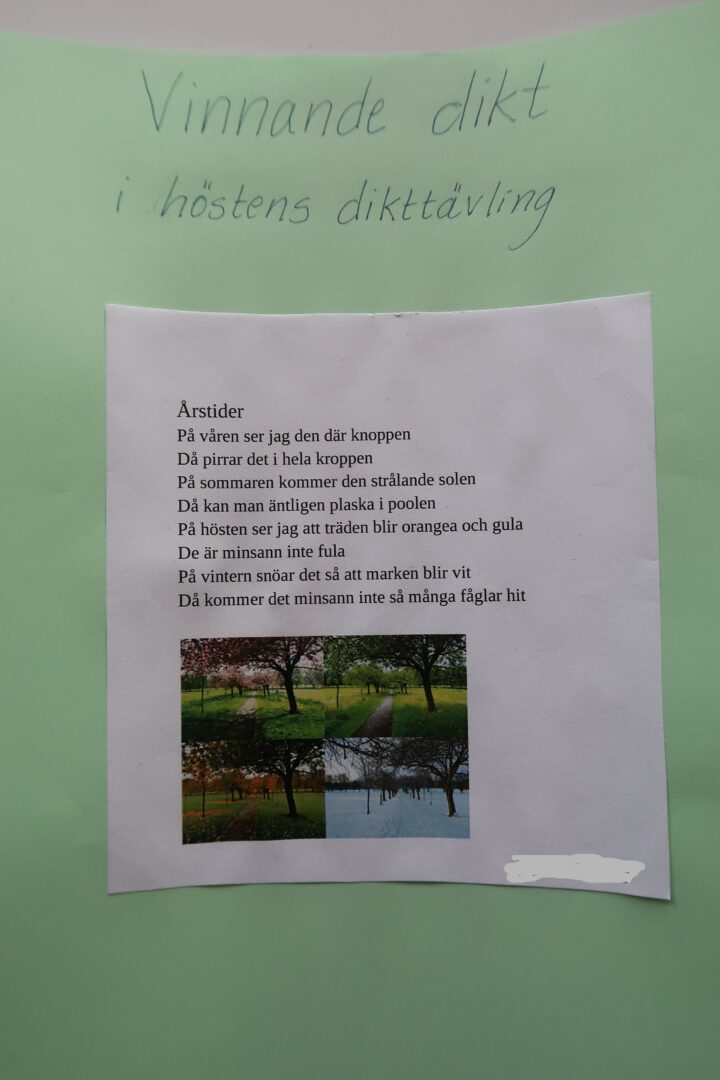 Vinnande dikt
i höstens dikttävling
Årstider
På våren ser jag den där knoppen
Då pirrar det i hela kroppen
På sommaren kommer den strålande solen
Då kan man äntligen plaska i poolen
På hösten ser jag att träden blir orangea och gula
De är minsann inte fula
På vintern snöar det så att marken blir vit
Då kommer det minsann inte så många fåglar hit